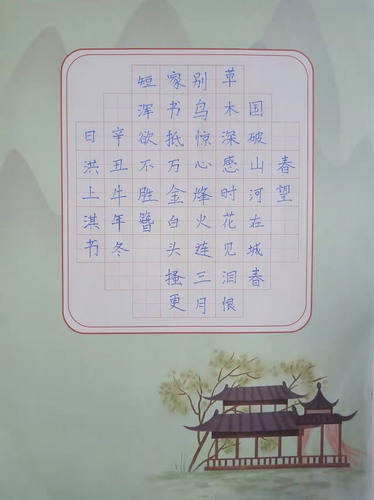 春望
国破山河在城春
草木深感时花见泪恨
别鸟惊心烽火连三月
家书抵万金白头搔更
短浑欲不胜簪
辛丑牛年冬
日洪上淇书